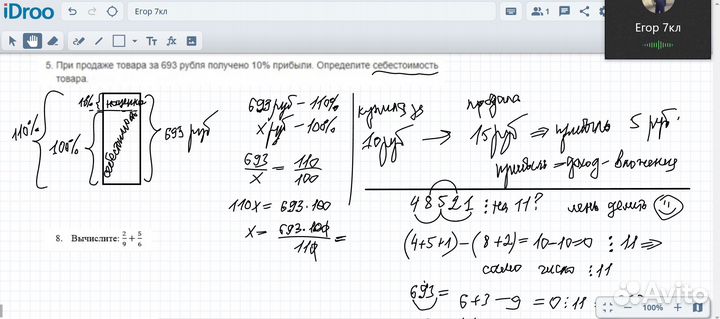 iDroo
Егор 7кл
1
Егор 7кл
5. При продаже товара за 693 рубля получено 10% прибыли. Определите себестоимость
товара.
110%
10%
наценка
100%
себестоимость
693 руб
693 руб – 110%
x руб – 100%
693/x = 110/100
110x = 693·100
x = 693·100/110 =
купила за
10 руб → 
продала
15 руб ⇒ прибыль 5 руб.
прибыль = доход – вложения
48521 ⋮ на 11? лень делить
(4+5+1)–(8+2)=10–10=0 ⋮ 11 ⇒
само число ⋮ 11
693 = 6+3–9 = 0 ⋮ 11 =
8. Вычислите: 2/9 + 5/6
Tт
fx
100%
Avito